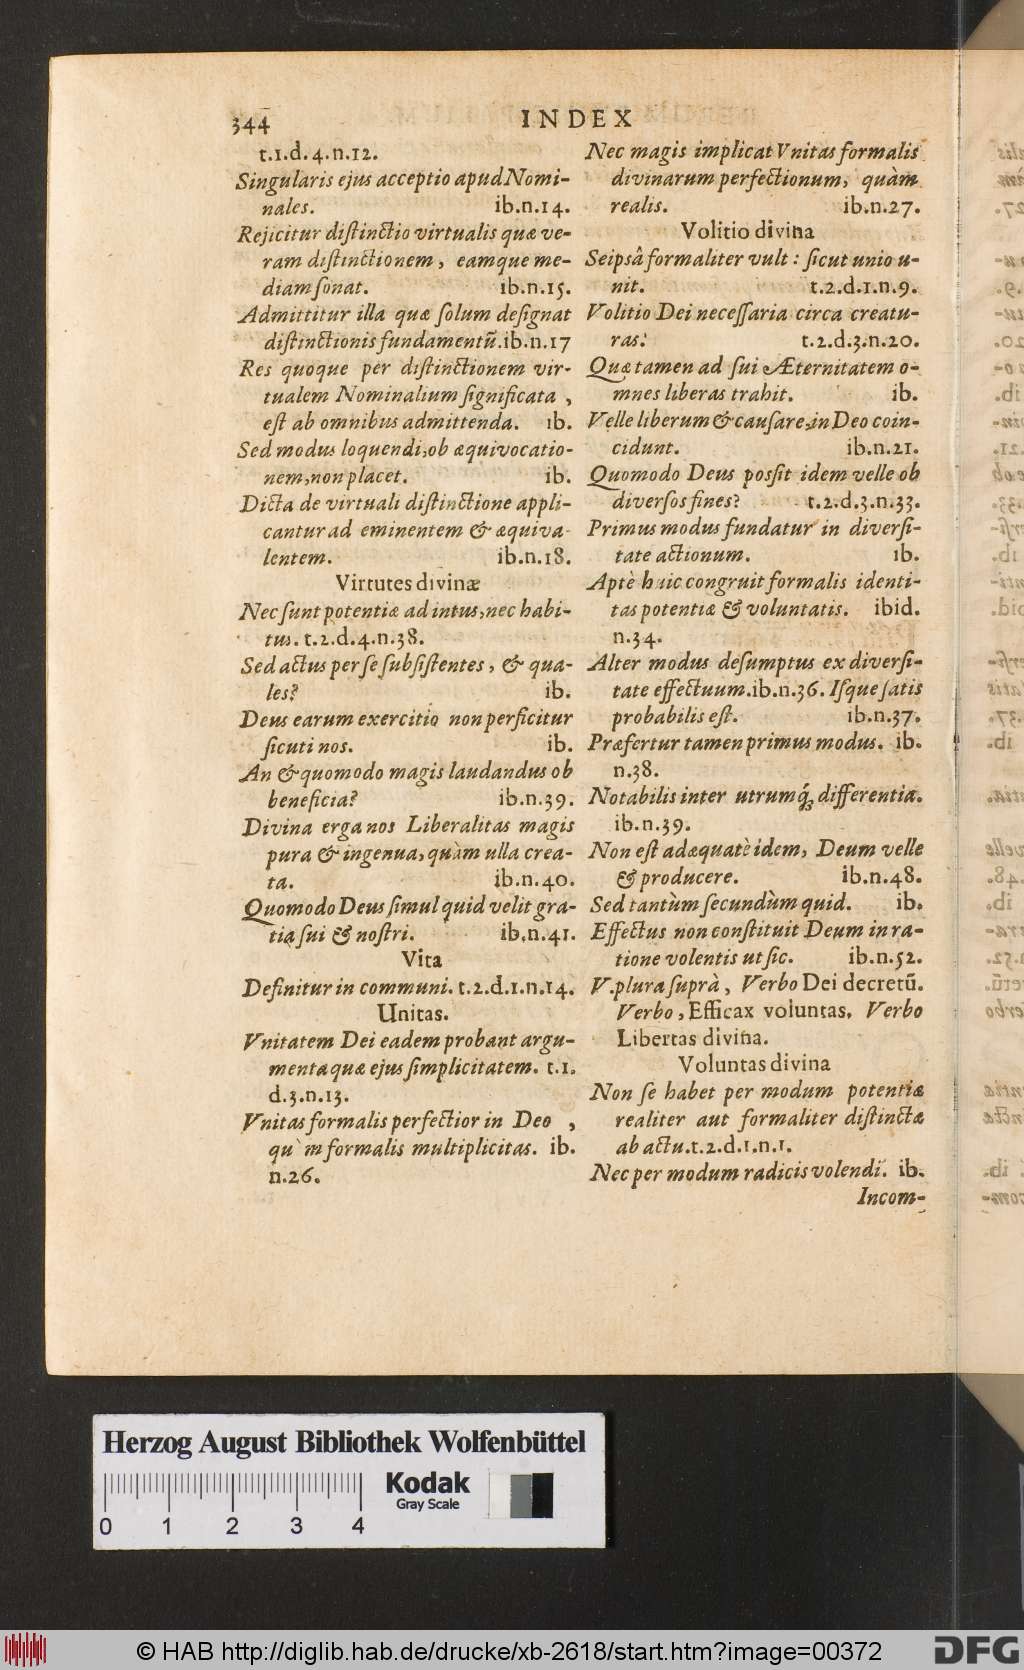 344
INDEX
t.1.d.4.n.12.
Singularis ejus acceptio apud Nomi-
nales. ib.n.14.
Rejicitur distinctio virtualis quæ ve-
ram distinctionem, eamque me-
diam sonat. ib.n.15.
Admittitur illa quæ solum designat
distinctionis fundamentū. ib.n.17
Res quoque per distinctionem vir-
tualem Nominalium significata,
est ab omnibus admittenda. ib.
Sed modus loquendi, ob æquivocatio-
nem, non placet. ib.
Dicta de virtuali distinctione appli-
cantur ad eminentem & æquiva-
lentem. ib.n.18.
Virtutes divinæ
Nec sunt potentiæ ad intus, nec habi-
tus. t.2.d.4.n.38.
Sed actus per se subsistentes, & qua-
les? ib.
Deus earum exercitio non perficitur
sicuti nos. ib.
An & quomodo magis laudandus ob
beneficia? ib.n.39.
Divina erga nos Liberalitas magis
pura & ingenua, quàm ulla crea-
ta. ib.n.40.
Quomodo Deus simul quid velit gra-
tia sui & nostri. ib.n.41.
Vita
Definitur in communi. t.2.d.1.n.14.
Unitas.
Vnitatem Dei eadem probant argu-
menta quæ ejus simplicitatem. t.1.
d.3.n.13.
Vnitas formalis perfectior in Deo,
qu`m formalis multiplicitas. ib.
n.26.
Nec magis implicat Vnitas formalis
divinarum perfectionum, quàm
realis. ib.n.27.
Volitio divina
Seipsâ formaliter vult: sicut unio u-
nit. t.2.d.1.n.9.
Volitio Dei necessaria circa creatu-
ras. t.2.d.3.n.20.
Quæ tamen ad sui Æternitatem o-
mnes liberas trahit. ib.
Velle liberum & causare in Deo coin-
cidunt. ib.n.21.
Quomodo Deus possit idem velle ob
diversos fines? t.2.d.3.n.33.
Primus modus fundatur in diversi-
tate actionum. ib.
Aptè huic congruit formalis identi-
tas potentiæ & voluntatis. ibid.
n.34.
Alter modus desumptus ex diversi-
tate effectuum. ib.n.36. Isque satis
probabilis est. ib.n.37.
Præfertur tamen primus modus. ib.
n.38.
Notabilis inter utrumq́; differentia.
ib.n.39.
Non est adæquatè idem, Deum velle
& producere. ib.n.48.
Sed tantùm secundùm quid. ib.
Effectus non constituit Deum in ra-
tione volentis ut sic. ib.n.52.
V. plura suprà, Verbo Dei decretū.
Verbo, Efficax voluntas, Verbo
Libertas divina.
Voluntas divina
Non se habet per modum potentiæ
realiter aut formaliter distinctæ
ab actu. t.2.d.1.n.1.
Nec per modum radicis volendi. ib.
Incom-
Herzog August Bibliothek Wolfenbüttel
Kodak
Gray Scale
0 1 2 3 4
© HAB http://diglib.hab.de/drucke/xb-2618/start.htm?image=00372
DFG